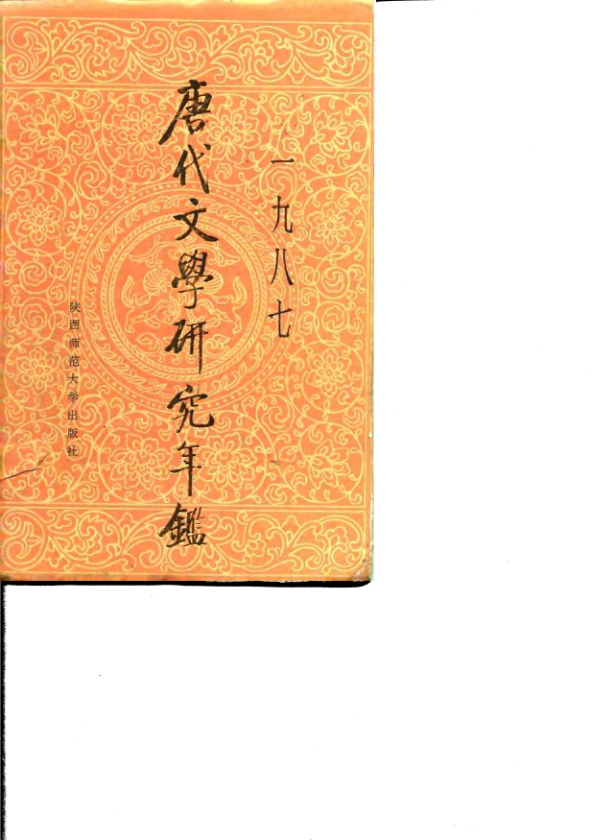 一九八七
唐代文學研究年鑑
陕西师范大学出版社